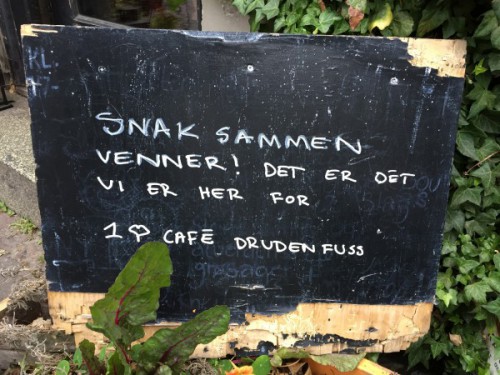 KL
SNAK SAMMEN
VENNER! DET ER DET
VI ER HER FOR
1 ♡ CAFÉ DRUDENFUSS